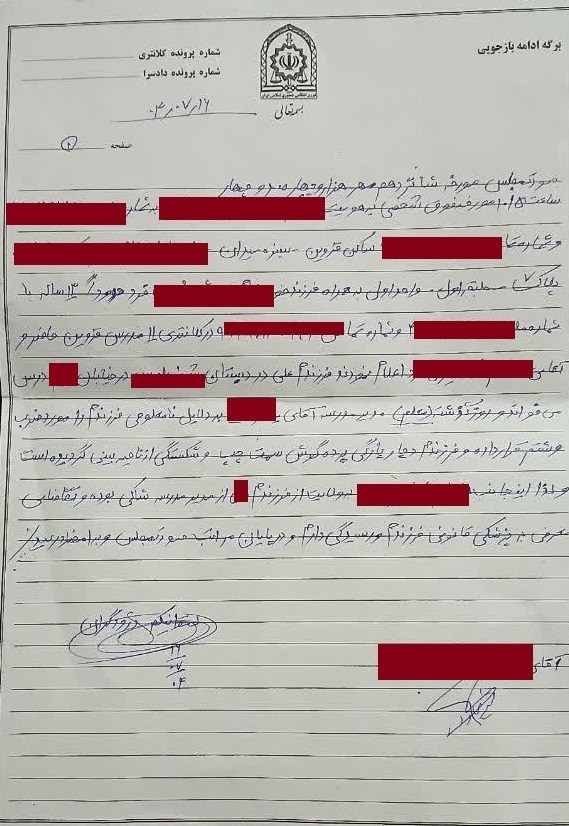 برگه ادامه بازجویی
شماره پرونده کلانتری
شماره پرونده دادسرا
بسمه‌تعالی
۰۴٫۰۷٫۱۶
صفحه ۲
صورتمجلس مورخه شانزدهم مهر هزار و چهارصد و چهار
ساعت ۱۰:۱۵ مورخه فوق شخصی به هویت به شماره
و شماره ساکن قزوین - سبزه میدان
پلاک ۷ طبقه اول - واحد اول به همراه فرزند خود ۱۳ ساله با
شماره و شماره تماس در کلانتری ۱۱ مدرس قزوین حاضر و
آقای اعلام نمودند فرزندم علی در دبستان در خیابان درس
می خواند و روز مدیر مدرسه آقای به دلایل نامعلومی فرزندم را مورد ضرب
و شتم قرار داده و فرزندم دچار پارگی پرده گوش سمت چپ و شکستگی از ناحیه بینی گردیده است
و لذا اینجانب به ولایت از فرزندم از مدیر مدرسه شاکی بوده و تقاضای
معرفی به پزشکی قانونی فرزندم و رسیدگی دارم و در پایان مراتب صورتمجلس و به امضاء رسید
آقای
۱۶
۰۷
۰۴